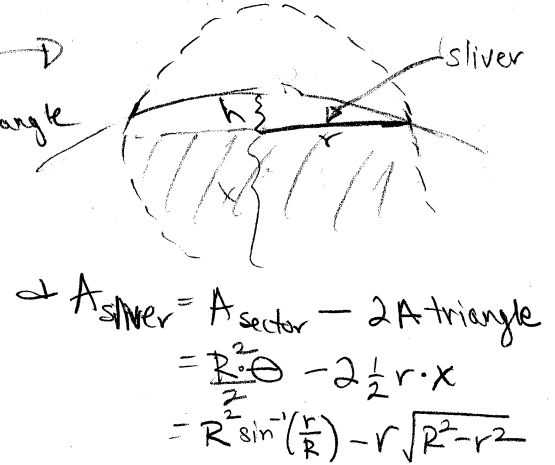 sliver
angle
h
r
x
A sliver = A sector − 2A triangle
= R²·θ/2 − 2 ½ r·x
= R² sin⁻¹(r/R) − r√(R²−r²)